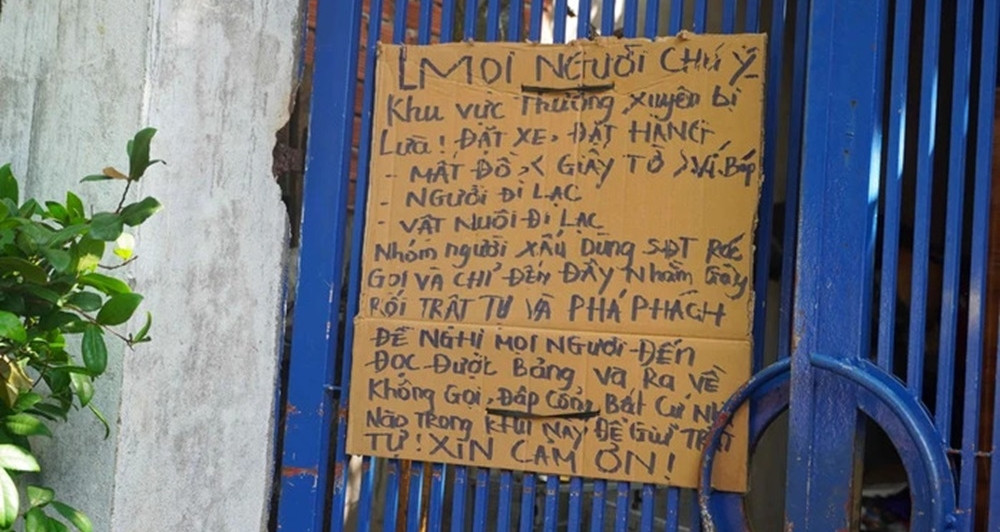 ! MỌI NGƯỜI CHÚ Ý
Khu vực Thường xuyên bị
Lừa! ĐẶT XE, ĐẶT HÀNG
- MẤT ĐỒ, < GIẤY TỜ > Ví, Bóp
- NGƯỜI ĐI LẠC
- VẬT NUÔI ĐI LẠC
Nhóm người xấu Dùng SĐT Rác
GỌI VÀ CHỈ ĐẾN ĐÂY Nhằm Gây
RỐI TRẬT TỰ VÀ PHÁ PHÁCH
ĐỀ NGHỊ MỌI NGƯỜI ĐẾN
ĐỌC ĐƯỢC Bảng và Ra về
Không Gọi, Đập Cổng Bất Cứ Nhà
Nào Trong KHU NÀY ĐỂ Giữ TRẬT
TỰ! XIN CẢM ƠN!